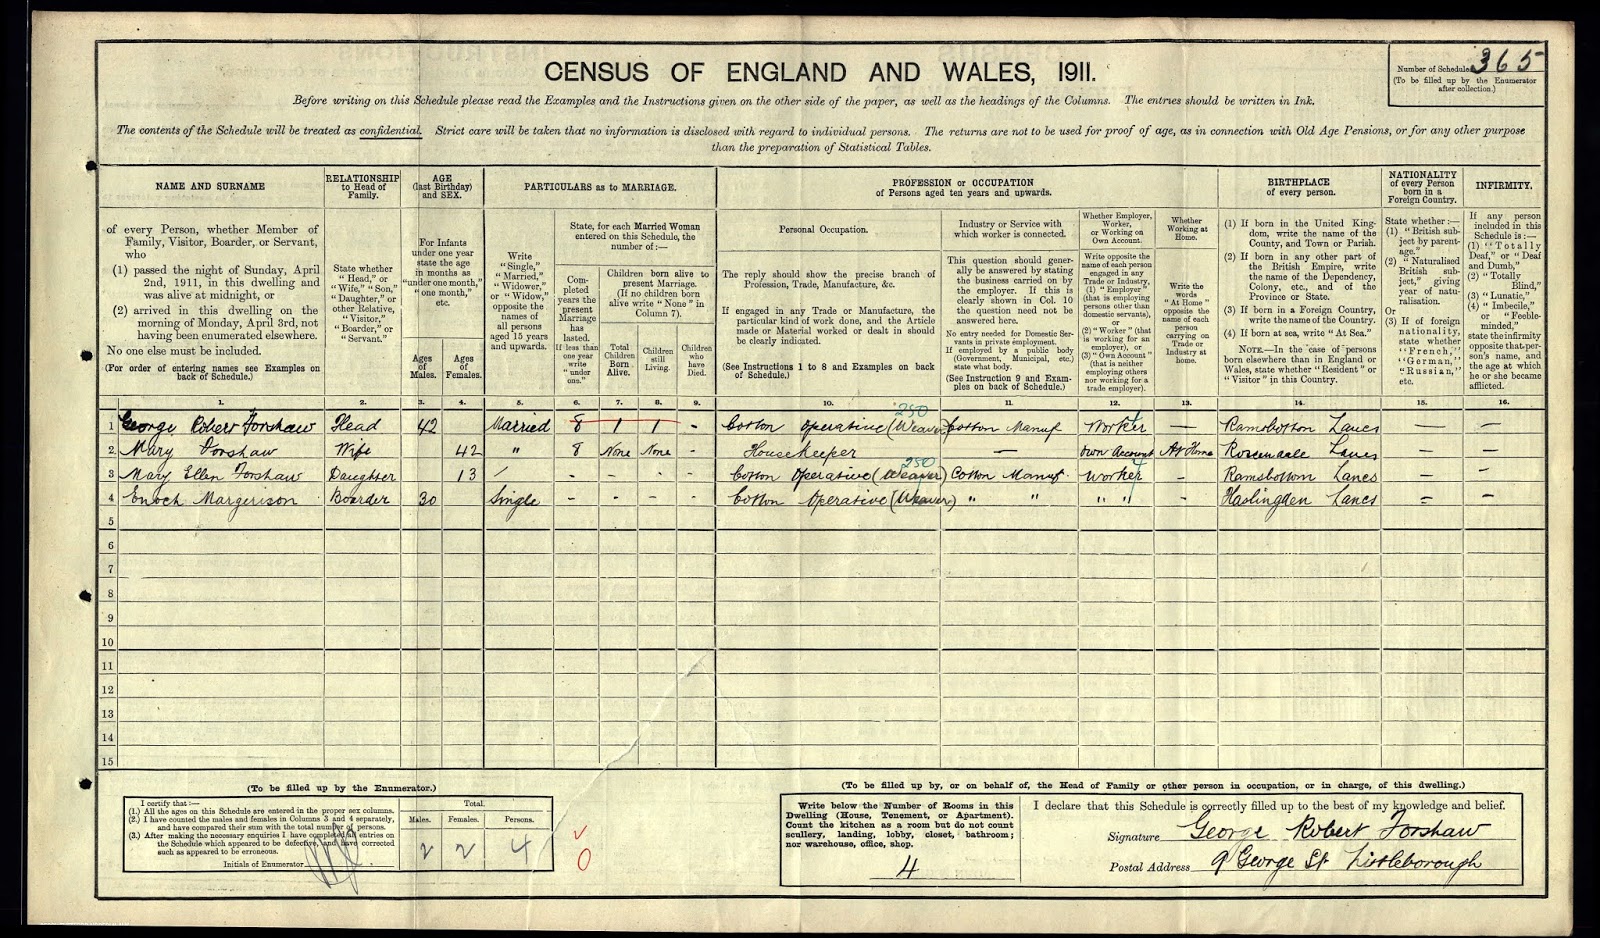 Number of Schedule 365
(To be filled up by the Enumerator
after collection.)
CENSUS OF ENGLAND AND WALES, 1911.
Before writing on this Schedule please read the Examples and the Instructions given on the other side of the paper, as well as the headings of the Columns. The entries should be written in Ink.
The contents of the Schedule will be treated as confidential. Strict care will be taken that no information is disclosed with regard to individual persons. The returns are not to be used for proof of age, as in connection with Old Age Pensions, or for any other purpose
than the preparation of Statistical Tables.
NAME AND SURNAME
of every Person, whether Member of
Family, Visitor, Boarder, or Servant,
who
(1) passed the night of Sunday, April
2nd, 1911, in this dwelling and
was alive at midnight, or
(2) arrived in this dwelling on the
morning of Monday, April 3rd, not
having been enumerated elsewhere.
No one else must be included.
(For order of entering names see Examples on
back of Schedule.)
RELATIONSHIP
to Head of
Family.
State whether
"Head," or
"Wife," "Son,"
"Daughter," or
other Relative,
"Visitor,"
"Boarder," or
"Servant."
AGE
(last Birthday)
and SEX.
For Infants
under one year
state the age
in months as
"under one month,"
"one month,"
etc.
Ages
of
Males.
Ages
of
Females.
PARTICULARS as to MARRIAGE.
Write
"Single,"
"Married,"
"Widower,"
or "Widow,"
opposite the
names of
all persons
aged 15 years
and upwards.
State, for each Married Woman
entered on this Schedule, the
number of:—
Com-
pleted
years the
present
Marriage
has
lasted.
If less than
one year
write
"under
one."
Children born alive to
present Marriage.
(If no children born
alive write "None" in
Column 7).
Total
Children
Born
Alive.
Children
still
Living.
Children
who
have
Died.
PROFESSION or OCCUPATION
of Persons aged ten years and upwards.
Personal Occupation.
The reply should show the precise branch of
Profession, Trade, Manufacture, &c.
If engaged in any Trade or Manufacture, the
particular kind of work done, and the Article
made or Material worked or dealt in should
be clearly indicated.
(See Instructions 1 to 8 and Examples on back
of Schedule.)
Industry or Service with
which worker is connected.
This question should gener-
ally be answered by stating
the business carried on by
the employer. If this is
clearly shown in Col. 10
the question need not be
answered here.
No entry needed for Domestic Ser-
vants in private employment.
If employed by a public body
(Government, Municipal, etc.)
state what body.
(See Instruction 9 and Exam-
ples on back of Schedule.)
Whether Employer,
Worker,
or Working on
Own Account.
Write opposite the
name of each person
engaged in any
Trade or Industry,
(1) "Employer"
(that is employing
persons other than
domestic servants),
or
(2) "Worker" (that
is working for an
employer), or
(3) "Own Account"
(that is neither
employing others
nor working for a
trade employer).
Whether
Working at
Home.
Write the
words
"At Home"
opposite the
name of each
person
carrying on
Trade or
Industry at
home.
BIRTHPLACE
of every person.
(1) If born in the United King-
dom, write the name of the
County, and Town or Parish.
(2) If born in any other part of
the British Empire, write
the name of the Dependency,
Colony, etc., and of the
Province or State.
(3) If born in a Foreign Country,
write the name of the Country.
(4) If born at sea, write "At Sea."
NOTE.—In the case of persons
born elsewhere than in England or
Wales, state whether "Resident" or
"Visitor" in this Country.
NATIONALITY
of every Person
born in a
Foreign Country.
State whether:—
(1) "British sub-
ject by parent-
age,"
(2) "Naturalised
British sub-
ject," giving
year of natu-
ralisation.
Or
(3) If of foreign
nationality,
state whether
"French,"
"German,"
"Russian,"
etc.
INFIRMITY.
If any person
included in this
Schedule is:—
(1) "Totally
Deaf," or "Deaf
and Dumb,"
(2) "Totally
Blind,"
(3) "Lunatic,"
(4) "Imbecile,"
or "Feeble-
minded,"
state the infirmity
opposite that per-
son's name, and
the age at which
he or she became
afflicted.
1. 2. 3. 4. 5. 6. 7. 8. 9. 10. 11. 12. 13. 14. 15. 16.
250
1 George Robert Forshaw Head 42 Married 8 1 1 - Cotton Operative (Weaver) Cotton Manuf Worker — Ramsbottom Lancs — —
2 Mary Forshaw Wife 42 " 8 None None - HouseKeeper — Own Account At Home Rossendale Lancs — —
250 4
3 Mary Ellen Forshaw Daughter 13 / - - - - Cotton Operative (Weaver) Cotton Manuf Worker - Ramsbottom Lancs — —
4 Enoch Margerison Boarder 30 Single - - - - Cotton Operative (Weaver) " " " " - Haslingden Lancs = —
5
6
7
8
9
10
11
12
13
14
15
(To be filled up by the Enumerator.)
I certify that:—
(1.) All the ages on this Schedule are entered in the proper sex columns.
(2.) I have counted the males and females in Columns 3 and 4 separately,
and have compared their sum with the total number of persons.
(3.) After making the necessary enquiries I have completed all entries on
the Schedule which appeared to be defective, and have corrected
such as appeared to be erroneous.
Initials of Enumerator
Total.
Males. Females. Persons.
2 2 4
0
(To be filled up by, or on behalf of, the Head of Family or other person in occupation, or in charge, of this dwelling.)
Write below the Number of Rooms in this
Dwelling (House, Tenement, or Apartment).
Count the kitchen as a room but do not count
scullery, landing, lobby, closet, bathroom;
nor warehouse, office, shop.
4
I declare that this Schedule is correctly filled up to the best of my knowledge and belief.
Signature George Robert Forshaw
Postal Address 9 George St Littleborough